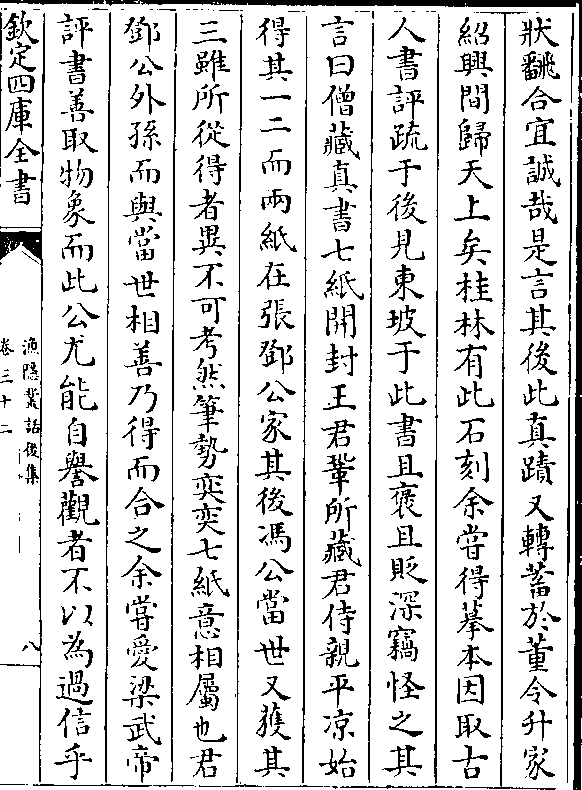 狀飜合宜誠哉是言其後此真蹟又轉蓄於董令升家
紹興間歸天上矣桂林有此石刻余嘗得摹本因取古
人書評疏于後見東坡于此書且褒且貶深竊怪之其
言曰僧藏真書七紙開封王君鞏所藏君侍親平凉始
得其一二而兩紙在張鄧公家其後馮公當世又獲其
三雖所從得者異不可考然筆勢奕奕七紙意相屬也君
鄧公外孫而與當世相善乃得而合之余嘗愛梁武帝
評書善取物象而此公尤能自譽觀者不以為過信乎
欽定四庫全書
漁隱叢話後集
卷三十二
八